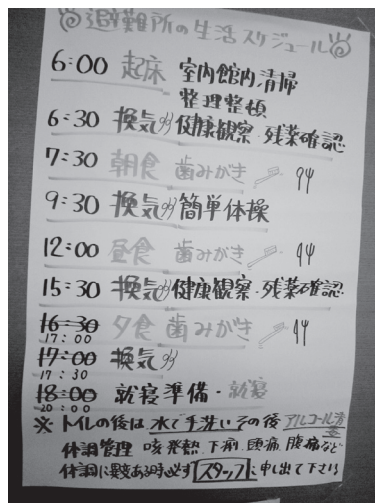 避難所の生活スケジュール
6:00 起床 室内館内清掃
整理整頓
6:30 換気 健康観察・残薬確認
7:30 朝食 歯みがき
9:30 換気 簡単体操
12:00 昼食 歯みがき
15:30 換気 健康観察・残薬確認
16:30 夕食 歯みがき
17:00
17:00 換気
17:30
18:00 就寝準備・就寝
20:00
※ トイレの後は水で手洗いその後アルコール消毒
体調管理 咳 発熱 下痢 頭痛 腹痛など
体調に異変ある時必ずスタッフに申し出て下さい